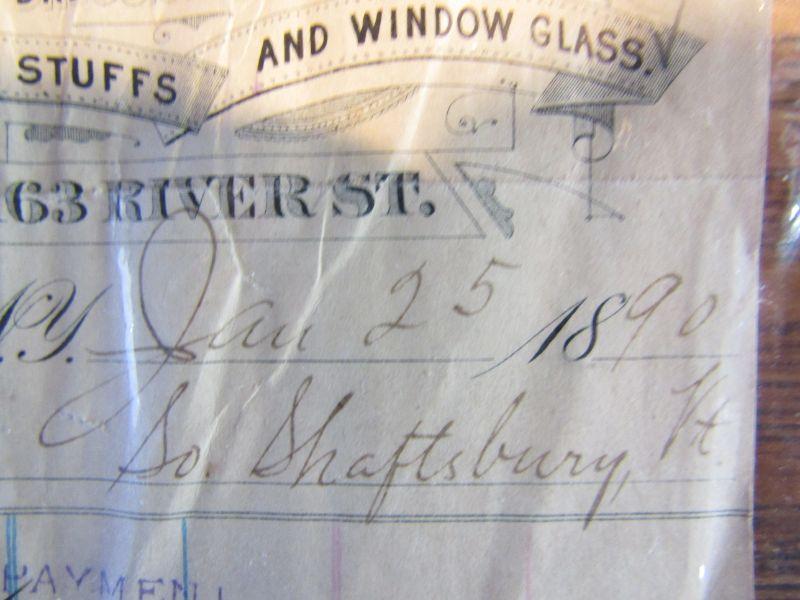 STUFFS AND WINDOW GLASS.
163 RIVER ST.
N.Y. Jan 25 1890
So. Shaftsbury, Vt.
PAYMENT